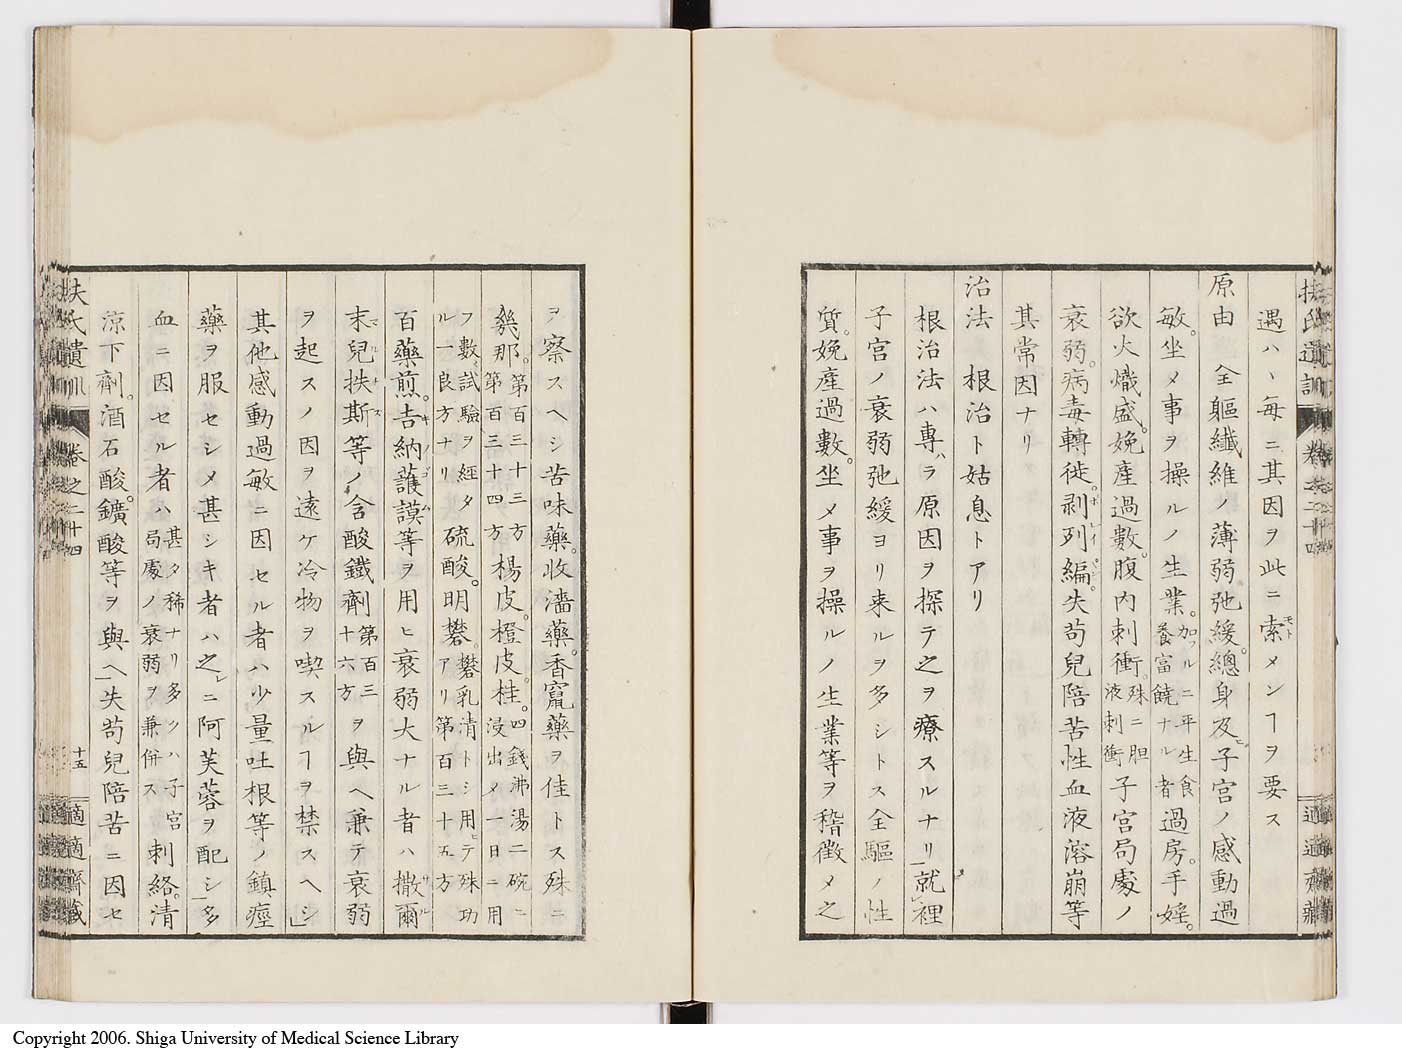 扶氏遺訓 卷之二十四 適適齋藏
遇ハヽ毎ニ其因ヲ此ニ索メンヿヲ要ス
原由 全軀纖維ノ薄弱。弛緩。總身及子宮ノ感動過
敏。坐メ事ヲ操ルノ生業。加フルニ平生食養富饒ナル者過房。手婬。
欲火熾盛。娩産過數。腹内刺衝。殊ニ胆液刺衝子宮局處ノ
衰弱。病毒轉徙。剥列編。失苟兒陪苦性血液溶崩等
其常因ナリ
治法 根治ト姑息トアリ
根治法ハ專ラ原因ヲ探テ之ヲ療スルナリ就裡
子宮ノ衰弱弛緩ヨリ来ルヲ多シトス全軀ノ性
質。娩産過數。坐メ事ヲ操ルノ生業等ヲ稽徴メ之
ヲ察スヘシ苦味藥。收濇藥。香竄藥ヲ佳トス殊ニ
幾那。第百三十三方第百三十四方楊皮。橙皮。桂。四錢沸湯二碗ニ浸出メ一日ニ用
フ數試驗ヲ經タル一良方ナリ硫酸。明礬。礬乳清トシ用テ殊功アリ第百三十五方
百藥煎。吉納護謨等ヲ用ヒ衰弱大ナル者ハ撒爾
末兒扶斯等ノ含酸鐵劑第百三十六方ヲ與ヘ兼テ衰弱
ヲ起スノ因ヲ遠ケ冷物ヲ喫スルヿヲ禁スヘシ」
其他感動過敏ニ因セル者ハ少量吐根等ノ鎮痙
藥ヲ服セシメ甚シキ者ハ之ニ阿芙蓉ヲ配シ多
血ニ因セル者ハ甚タ稀ナリ多クハ子宮局處ノ衰弱ヲ兼併ス刺絡。清
涼下劑。酒石酸。鑛酸等ヲ與ヘ失苟兒陪苦ニ因セ
扶氏遺訓 卷之二十四 十五 適適齋藏
Copyright 2006. Shiga University of Medical Science Library